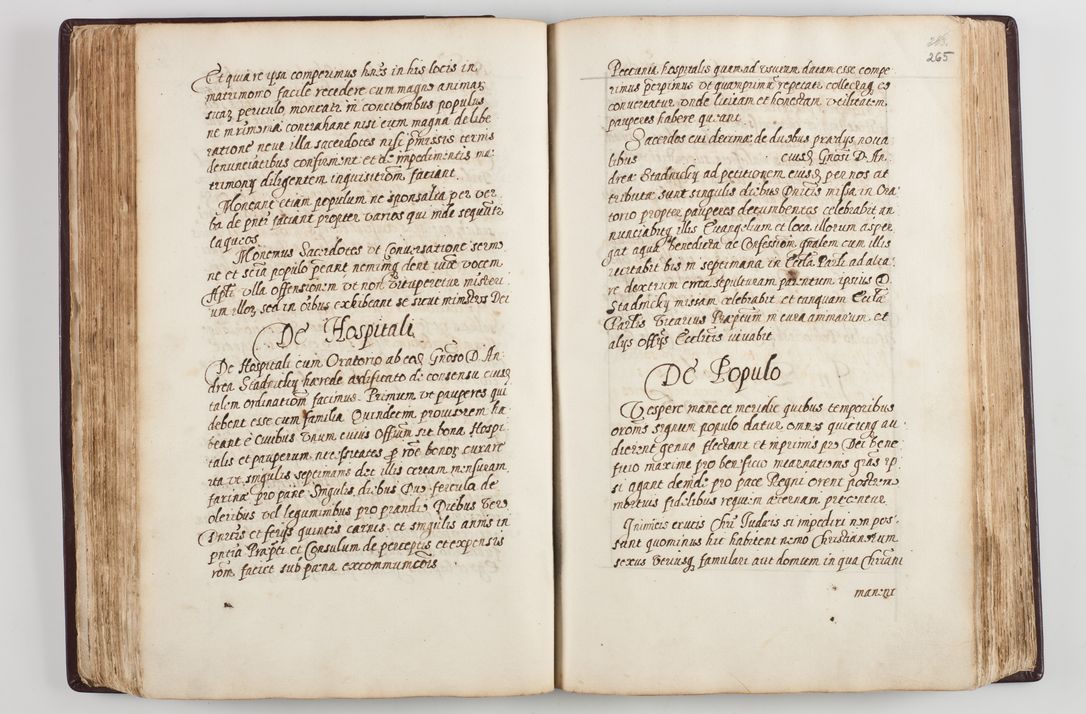 Et quia re ipsa comperimus hnes in his locis in
matrimonio facile recedere cum magno animar
suar periculo, moneatr in concionibus populus
ne mrimonia contrahant nisi cum magna delibe
ratione neue illa sacerdotes nisi pmissis ternis
denunciatibus confirment et de impedimentis ma
trimony diligentem inquisitiom faciant.
Moneant etiam populum ne sponsalia per ver
ba de pnti faciant propter varios qui inde sequutr
laqueos.
Monemus Sacerdotes vt Conuersatione sermo
ne et scia populo peant neming dent iux vocem
Apli vlla offensionem vt non vituperetur misteri
um illor, sed in oibus exhibeant se sicut ministros Dei
De Hospitali
De Hospitali cum Oratorio ab eod Gnoso D. An
drea Stadnicky hærede ædificato de consensu eiusq
talem ordinatiom facimus. Primum vt pauperes qui
debent esse cum familia Quindecim, prouisorem ha
beant è Ciuibus Vnum cuius Offium sit bona Hospi
talis et pauperum necessitates p roe bonor curare
ita vt singulis septimanis det illis ceream mensuram
farinæ pro pane Singulis diebus Duo fercula de
oleribus vel leguminibus pro prandio Diebus vero
Dnicis et ferys quintis carnis. et singulis annis in
pntia Præpti et Consulum de perceptis et expensis
rom faciet sub pæna excommunicois
265
Peccunia hospitalis quam ad vsuram datam esse compe
rimus perpimus vt quamprimum repetatr collectaq co
conuertatur vnde licitam et honestam vtilitatem
pauperes habere queant.
Sacerdos cui decimæ de duobus prædys noua
libus eiusq Gnosi D. An
dreæ Stadnicky ad petitionem eiusq per nos at
tributæ sunt singulis diebus Dnicis missa in Ora
torio propter pauperes decumbentes celebrabit an
nunciabitq illis Euangelium et loca illorum asper
gat aqua Benedicta ac Confessiom gnalem cum illis
recitabit bis in septimana in Eccla Parli ad alta
re dextrum circa sepulturam parentum ipsius D.
Stadnicky missam celebrabit et tanquam Eccla
Parlis Vicarius Præptum in cura animarum et
alys offys Ecclticis iuuabit
De Populo
Vespere mane et meridie quibus temporibus
orois signum populo datur omnes quicunq au
dierent genua flectant et inprimis pro Dei bene
ficio maxime pro beneficio incarnationis gras ip
si agant deinde pro pace Regni orent postrem
mortuis fidelibus requiem æternam precentur
Inimicis crucis Chri Judæis si impediri non pos
sunt quominus hic habitent nemo Christianorum
sexus vtriusq famulari aut domum in qua Chriani
manent